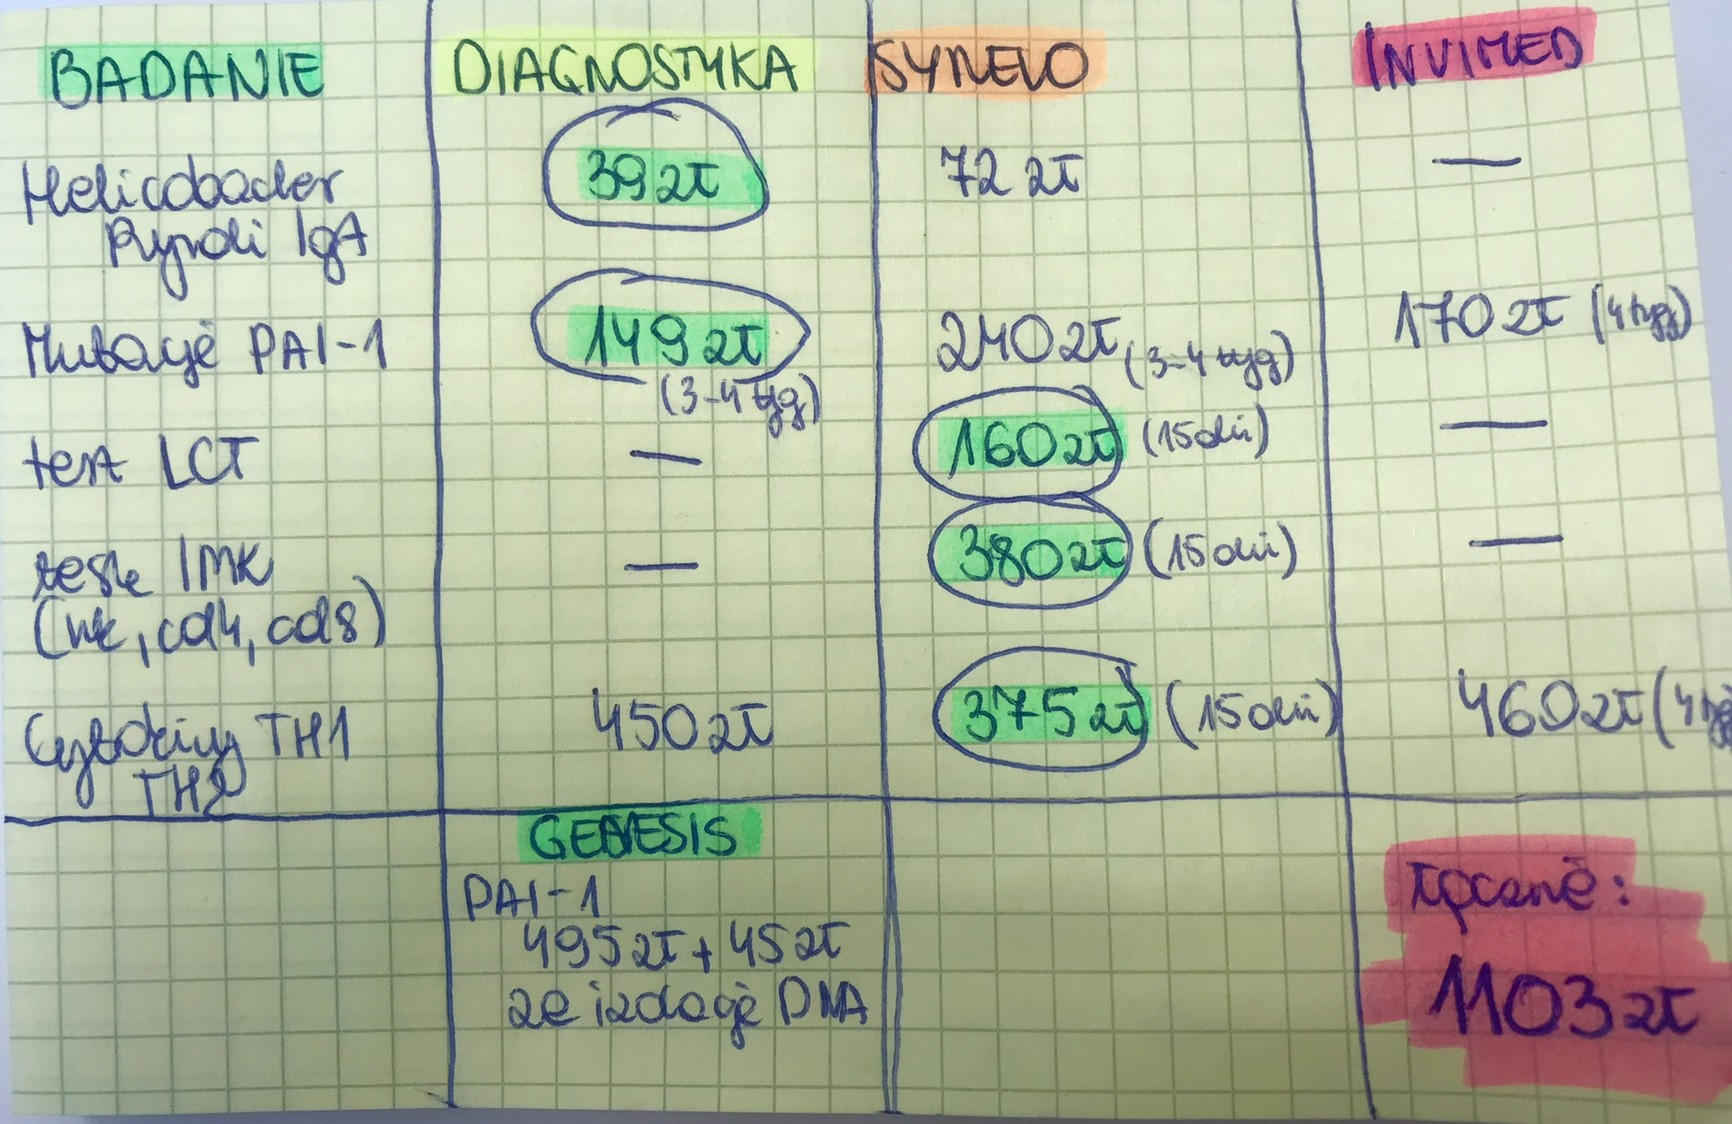 BADANIE DIAGNOSTYKA SYNEVO INVIMED
Helicobacter 39 zł 72 zł —
Pylori IgA
Mutacje PAI-1 149 zł 240 zł (3-4 tyg) 170 zł (4 tyg)
(3-4 tyg)
test LCT — 160 zł (15 dni) —
test IMK — 380 zł (15 dni) —
(nk, cd4, cd8)
Cytokiny TH1 450 zł 375 zł (15 dni) 460 zł (4 tyg
TH2
GENESIS
PAI-1
495 zł + 45 zł
za izolację DNA
łącznie:
1103 zł